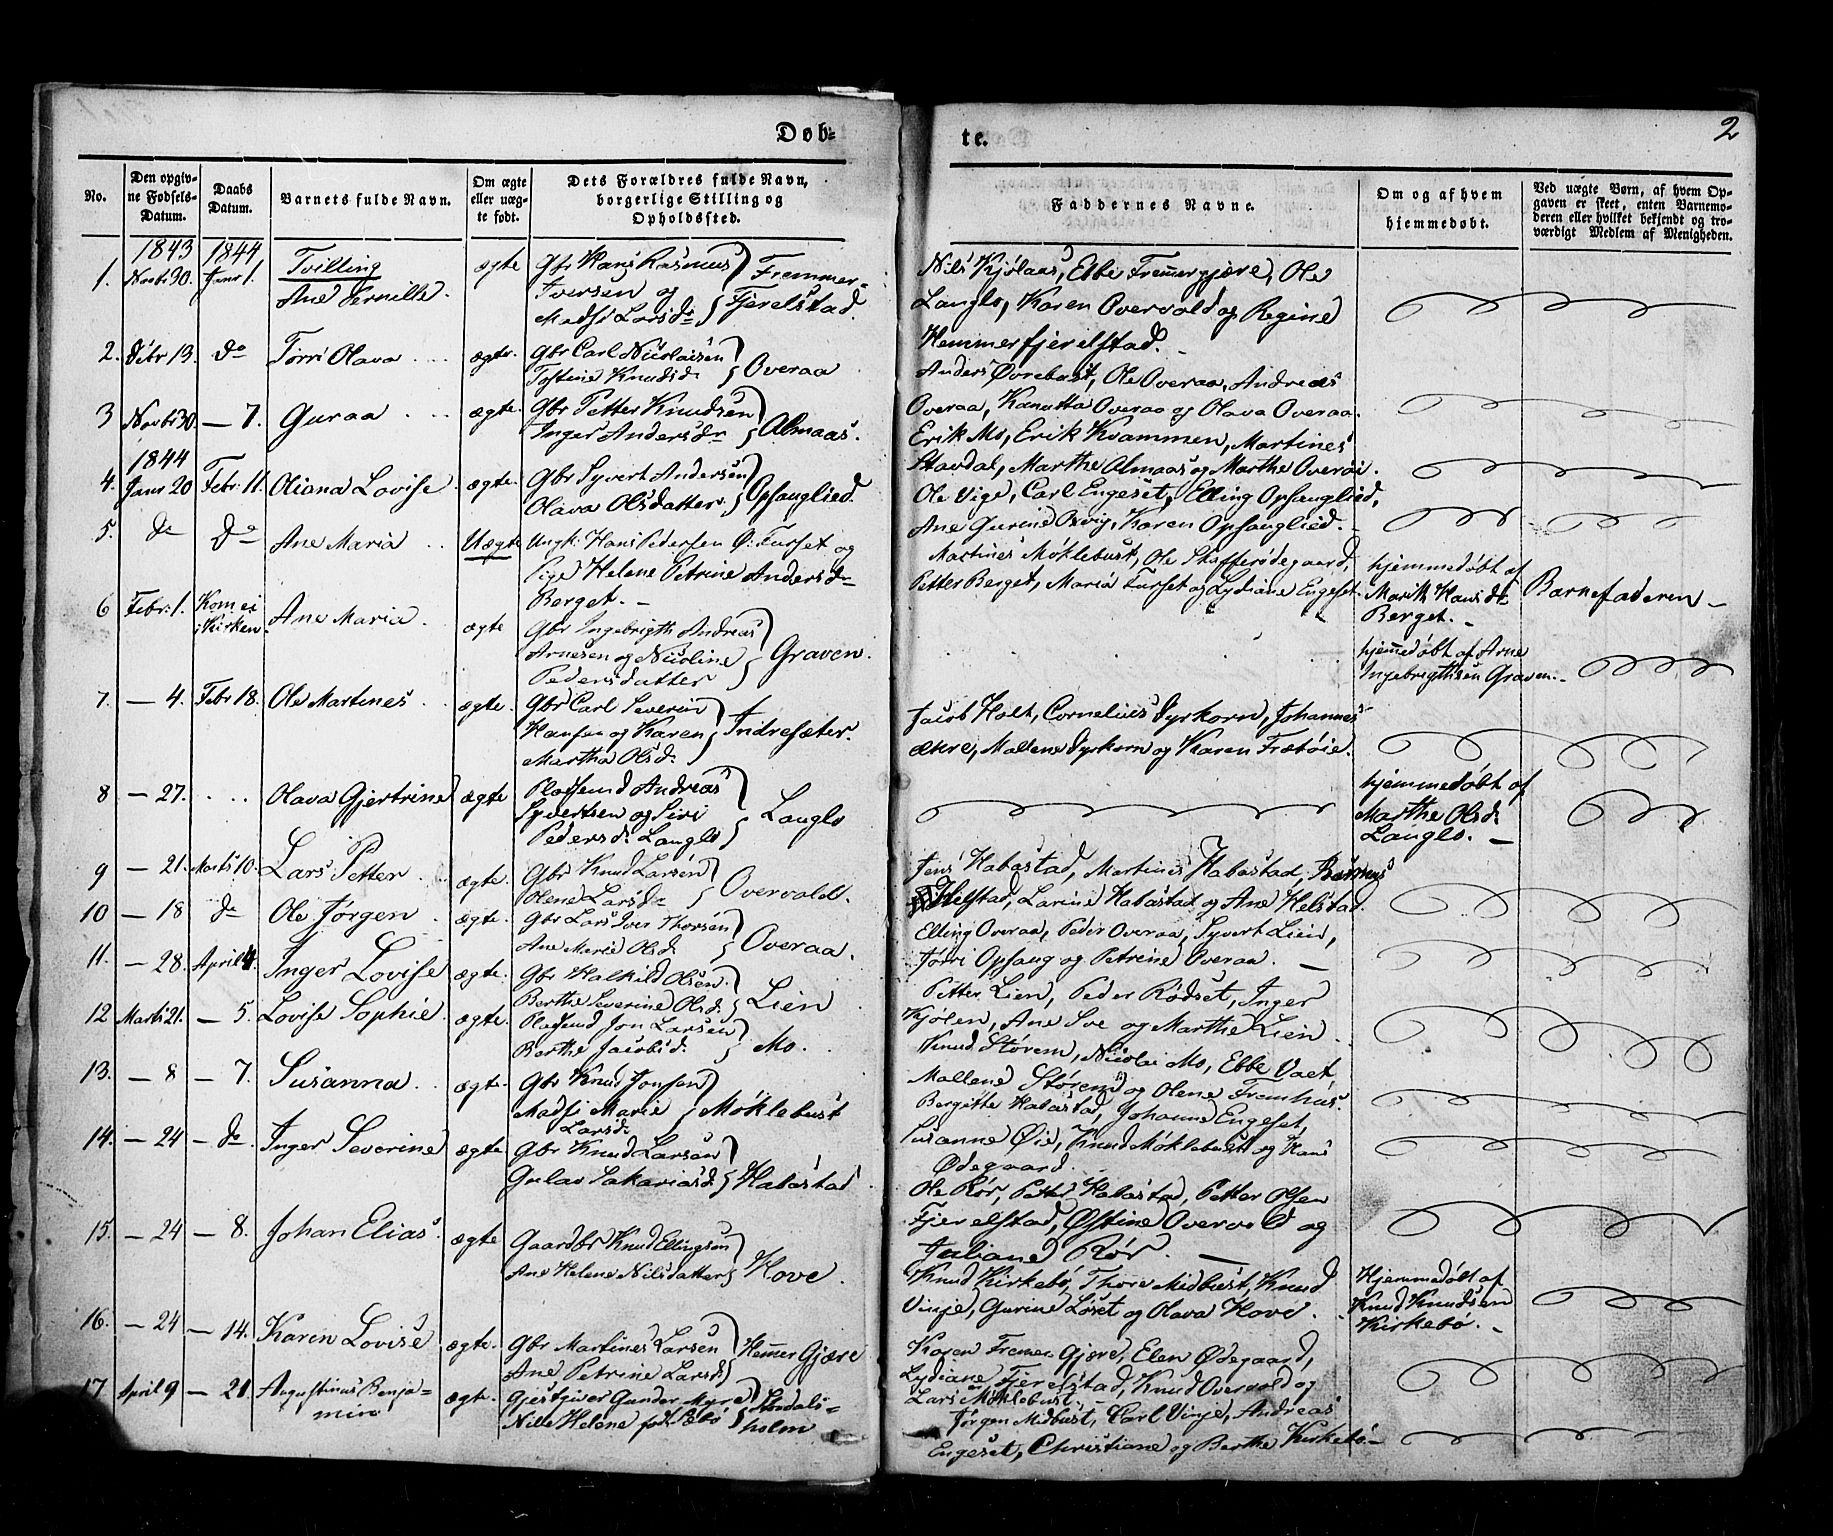 Døb=
te.
2
No.
Den opgiv-
ne Fødsels-
Datum.
Daabs
Datum.
Barnets fulde Navn.
Om ægte
eller uæg-
te født.
Dets Forældres fulde Navn,
borgerlige Stilling og
Opholdssted.
Faddernes Navne.
Om og af hvem
hjemmedøbt.
Ved uægte Børn, af hvem Op-
gaven er skeet, enten Barnemo-
deren eller hvilket bekjendt og tro-
værdigt Medlem af Menigheden.
1843 1844
1. Novbr 30. Janr 1. Tvilling
Ane Pernille. ægte Gbr Hans Rasmus
Iversen og
Madsi Larsdr Fremmer-
Fjerelstad.
Nils Kjölaas, Ebbe Fremergjære, Ole
Langlo, Karen Overvold og Regine
Hemmerfjerelstad.
2. Débr 13. do Törri Olava ægte. Gbr Carl Nicolaisen
Tostine Knudsdr Overaa
Anders Øvrebust, Ole Overaa, Andreas
Overaa, Kanutta Overaa og Olava Overaa.
3 Novbr 30 — 7. Guraa ægte. Gbr Petter Knudsen
Inger Andersdr Almaas.
Erik Mo, Erik Kvammen, Martines
Stavdal, Marthe Almaas og Marthe Overøi.
1844
4. Janr 20 Febr. 11. Oliana Lovise ægte. Gbr Syvert Andersen
Olava Olsdatter. Opsanglied.
Ole Vige, Carl Engeset, Elling Opsanglied,
Ane Gurine Oxvig, Karen Opsanglied.
5. do Do Ane Maria Uægte Ungk: Hans Pedersen Ø: Furset og
Pige Helene Petrine Andersdr
Berget. —
Martines Möklebust, Ole Skafferödegaard,
Petter Berget, Maria Furset og Lydiane Engeset.
hjemmedøbt af
Marith Hansdr
Berget. —
Barnefaderen —
6 Febr. 1. Kom ei
i Kirken Ane Maria ægte Gbr Ingebrigth Andreas
Arnesen og Nicoline
Pedersdatter Graven.
hjemmedøbt af Arne
Ingebrigthsen Graven.
7. — 4. Febr 18. Ole Martines ægte. Gbr Carl Severin
Hansen og Karen
Martha Olsdr Indresæter.
Jacob Holt, Cornelius Dyrkorn, Johannes
Mallene Dyrkorn og Karen Fræbøie.
8 — 27. Olava Gjertrine ægte Pladsmd Andreas
Syvertsen og Siri
Pedersdr Langlo Langlo
hjemmedøbt af
Marthe Olsdr
Langlo. —
9 — 21. Marts 10. Lars Petter ægte. Gbr Knud Larsen
Olene Larsdr Overvold.
Jens Habostad, Martines Habostad, Rasmus
Helstad, Larine Habostad og Ane Helstad.
10 — 18 do Ole Jörgen ægte. Gbr Lars Iver Thorsen
Ane Marie Olsdr Overaa.
Elling Overaa, Peder Overaa, Syvert Lien,
Törri Opsang og Petrine Overaa. —
11. — 28. April 4. Inger Lovise ægte. Gbr Halkild Olsen
Berthe Severine Olsd. Lien
Petter Lien, Peder Rödset, Inger
Kjölen, Ane Sve og Marthe Lien
12 Marts 21. — 5. Lovise Sophie ægte. Pladsmd Jon Larsen
Berthe Jacobsdr Mo.
Knud Störem, Nicolai Mo, Ebbe Vaet
Mallene Störem og Olene Fremhus.
13. — 8 — 7. Susanna ægte. Gbr Knud Jonsen
Madsi Marie
Larsdr Möklebust
Bergitte Habostad, Johanne Engeset,
Susanne Øie, Knud Möklebust og Hans
Ødegaard.
14. — 24 — do. Inger Severine ægte Gbr Knud Larsen
Gulav Sakariasdr Habostad
Ole Rör, Petter Habostad, Petter Olsen
Fjerelstad, Østine Overvold og
Juliane Rör. —
15. — 24 — 8. Johan Elias. ægte Gaardbr Knud Ellingsen
Ane Helene Nilsdatter Hove.
Knud Kirkebö, Thore Midbust, Knud
Vinje, Gurine Löset og Olava Hove.
Hjemmedøbt af
Knud Knudsen
Kirkebö. —
16. — 24 — 14. Karen Lovise ægte. Gbr Martines Larsen
Ane Petrine Larsd. Hemer Gjære
Karen Fremer Gjære, Elen Ødegaard,
Lydiane Fjerelstad, Knud Overvold og
Lars Möklebust.
17. April 9 — 21. Augustinus Benja-
min ægte. Gjestgiver Gunder Myre
Nille Helene født Æbö Söndals-
holm
Jörgen Midbust, Carl Vinje, Andreas
Engeset, Christiane og Berthe Kirkebö —